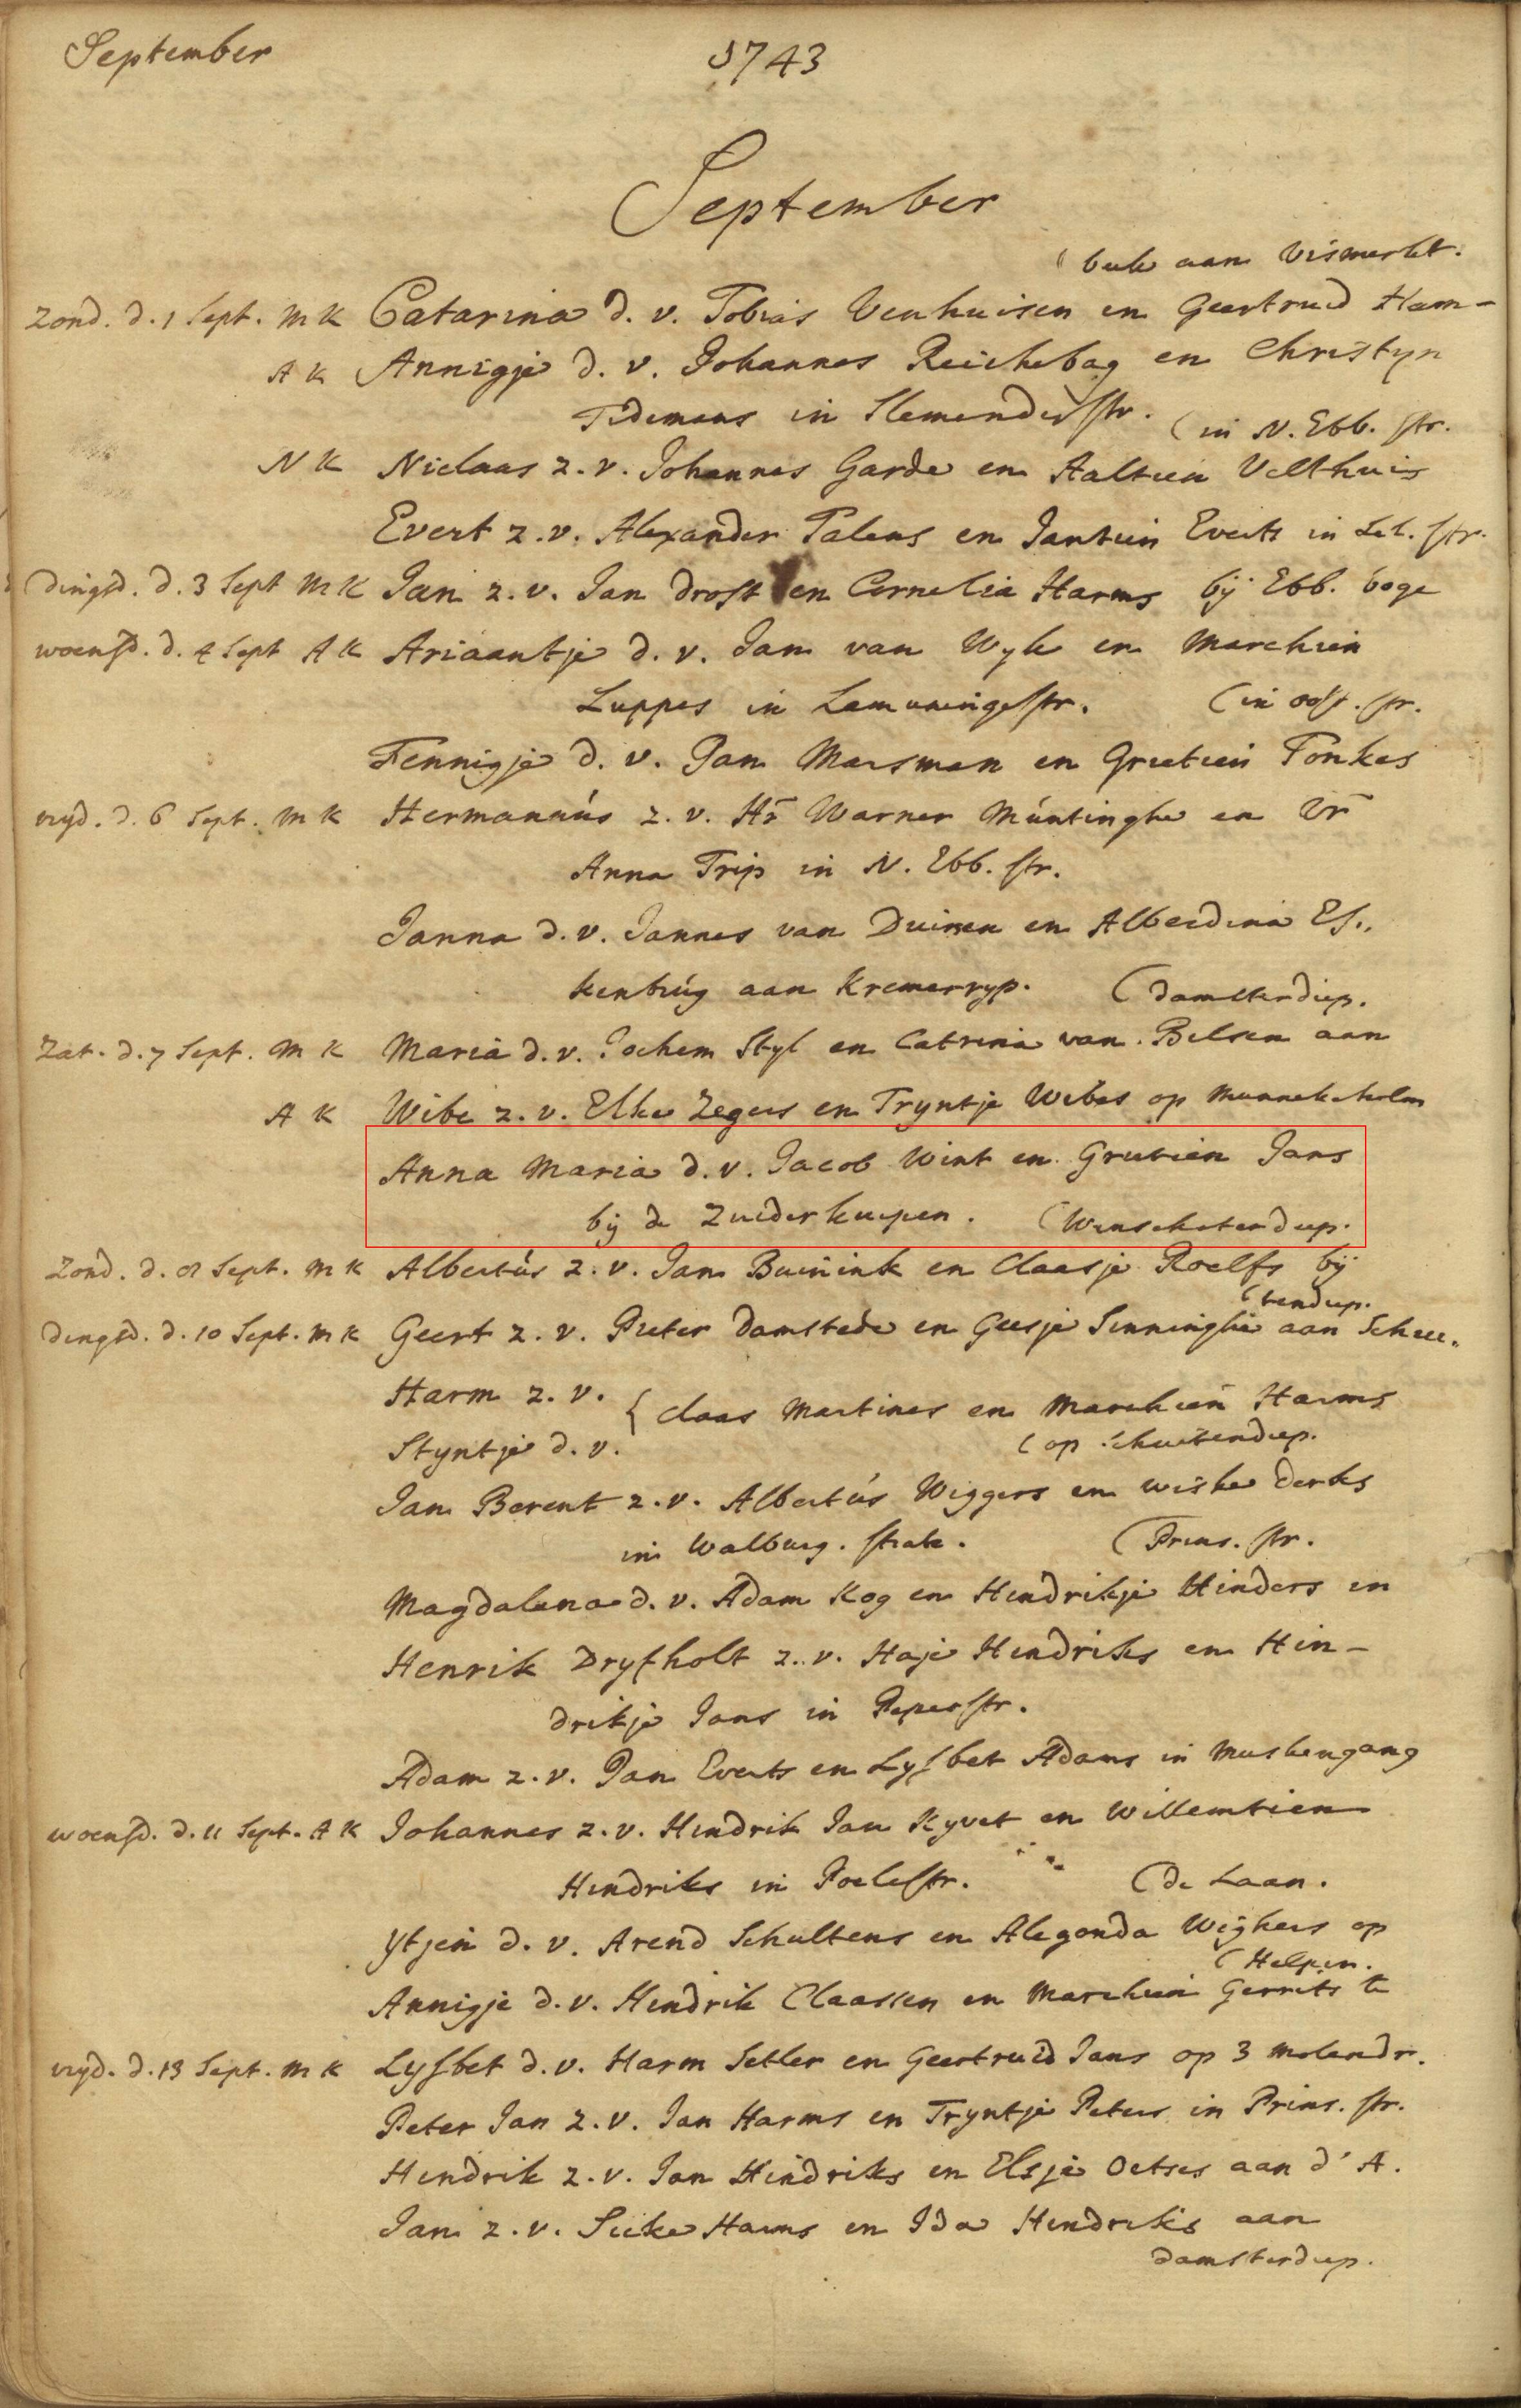 September
1743
September
( beek aan Vismerkt.
Zond. d. 1 Sept. M K Catarina d. v. Tobias Venhuisen en Geertruid Ham-
A K Annigje d. v. Johannes Reichebag en Christyn
Tidemans in Slemenderstr. ( in N. Ebb. str.
N K Niclaas z. v. Johannes Garde en Aaltien Velthuis
Evert z. v. Alexander Palens en Jantien Everts in Sch. str.
Dingsd. d. 3 Sept M K Jan z. v. Jan Drost en Cornelia Harms bij Ebb. boge
woensd. d. 4 Sept A K Ariaantje d. v. Jan van Wyk en Marchien
Luppes in str. (in oost. str.
Fennigje d. v. Jan Marsman en Grietien Fonkes
vryd. d. 6 Sept. M K Hermannús z. v. Hr Warner Múntinghe en Vr
Anna Trip in N. Ebb. str.
Janna d. v. Jannes van Duinen en Alberdina Es„
kenbrúg aan Kremerryp. (Damsterdiep.
Zat. d. 7 Sept. M K Maria d. v. Jochem Styl en Catrina van Belsen aan
A K Wibe z. v. Elke Zegers en Tryntje Wibes op Munnekeholm
Anna Maria d. v. Jacob Wint en Grietien Jans
bij de Zuiderkuipen. (Winschoterdiep.
Zond. d. 8 Sept. M K Albertús z. v. Jan Buinink en Claasje Roelfs bij
(tendiep.
Dingsd. d. 10 Sept. M K Geert z. v. Pieter Damstede en Geesje Sinninghe aan Schui„
Harm z. v. { Claas Martines en Marchien Harms
Styntje d. v. ( op Schuitendiep.
Jan Berent z. v. Albertús Wiggers en Wiske Derks
in Walburg. strate. (Prins. str.
Magdalena d. v. Adam Kog en Hendrikje Hinders in
Henrik Dryfholt z. v. Haje Hendriks en Hin-
drikje Jans in Peperstr.
Adam z. v. Jan Everts en Lysbet Adams in Muskengang
woensd. d. 11 Sept. A K Johannes z. v. Hendrik Jan Kyvet en Willemtien
Hendriks in Poelestr. (de Laan.
Ytjen d. v. Arend Schultens en Alegonda Wighers op
(Helpen.
Annigje d. v. Hendrik Claassen en Marchien Gerrits te
vryd. d. 13 Sept. M K Lysbet d. v. Harm Setler en Geertruid Jans op 3 molendr.
Peter Jan z. v. Jan Harms en Tryntje Peters in Prins. str.
Hendrik z. v. Jan Hindriks en Elsje Oetses aan d' A.
Jan z. v. Sicke Harms en Ida Hendriks aan
Damsterdiep.